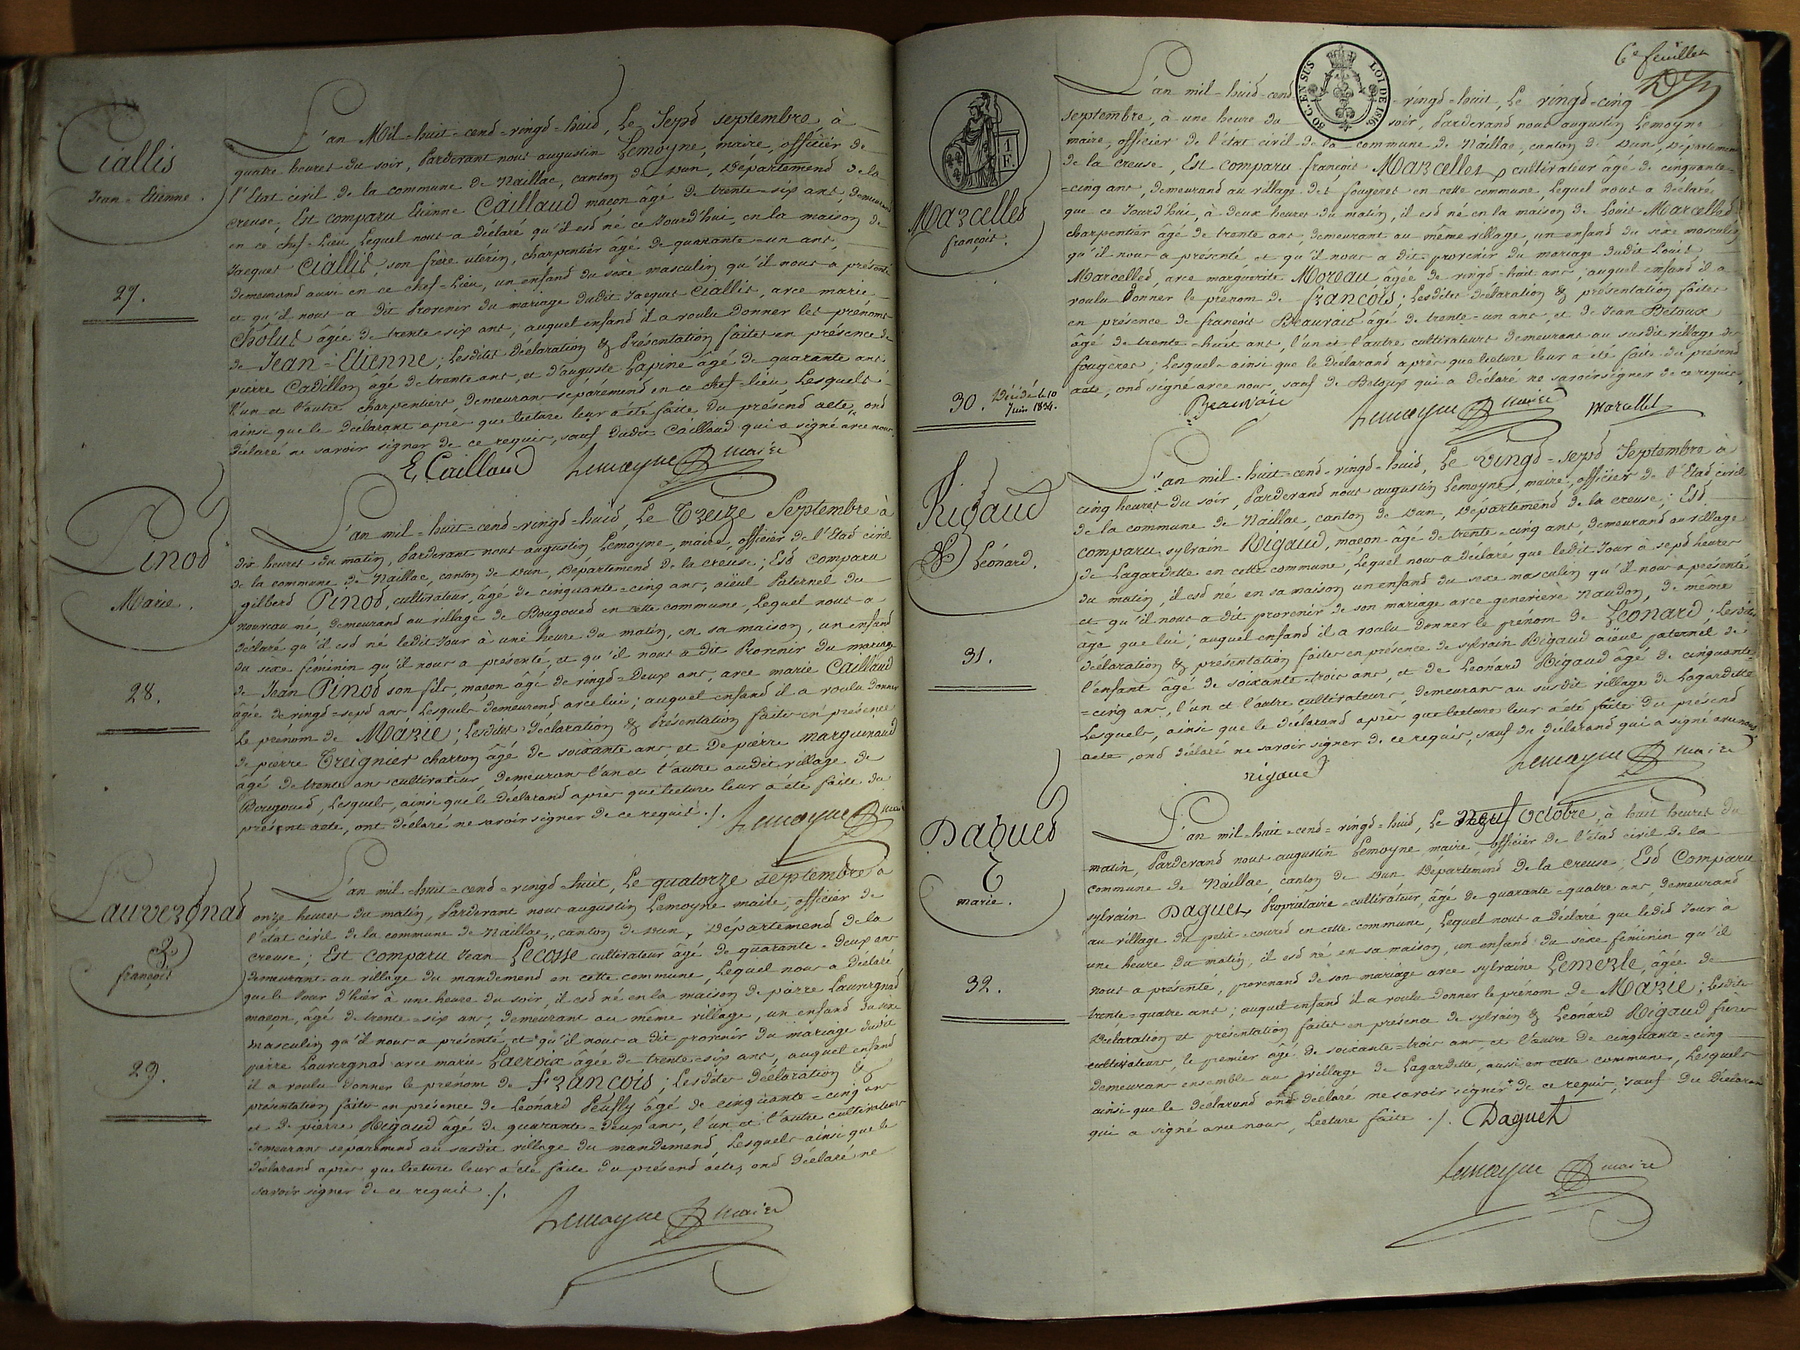 Ciallis
Jean-Etienne.
27.
L'an Mil-huit-cend-vingd-huid, Le Sepd septembre à
quatre heures du soir, Pardevant nous augustin Lemoyne, maire, officier de
l'Etat civil de la commune de Naillac, canton de Dun, Département de la
creuse, Est comparu Etienne Caillaud maçon âgé de trente-six ans, demeurand
en ce chef-Lieu, Lequel nous a déclaré qu'il esd né ce Jourd'hui, en la maison de
Jacques Ciallis, son frere utérin, charpentier âgé de quarante-un ans,
demeurand aussi en ce chef-Lieu, un enfand du sexe masculin qu'il nous a présenté
et qu'il nous a dit Provenir du mariage dudit Jacques Ciallis, avec marie
Cholus âgée de trente-six ans; auquel enfand il a voulu donner les prénoms
de Jean-Etienne; Lesdites Déclaration & Présentation faites en présence de
pierre Cadillon âgé de trente ans, et d'auguste Lapine âgé de quarante ans
l'un et l'autre charpentiers, demeurans séparémend en ce chef-lieu Lesquels
ainsi que le Déclarant après que lecture leur a été faite du présend acte, ond
déclaré ne savoir signer de ce requis, sauf Dudit Caillaud qui a signé avec nous.
E. Caillaud Lemoyne maire
Pinod
Marie.
28.
L'an mil-huit-cend-vingd-huid, Le Treize Septembre à
dix heures du matin, Pardevant nous augustin Lemoyne, maire, officier de l'Etad civil
de la commune de Naillac, canton de Dun, Départemend de la creuse; Esd comparu
gilberd Pinod, cultivateur, âgé de cinquante-cinq ans, aïeul Paternel du
nouveau né, demeurand au village de Bougoued en cette commune, Lequel nous a
déclaré qu'il esd né ledit Jour à une heure du matin, en sa maison, un enfand
du sexe féminin qu'il nous a présenté, et qu'il nous a dit Provenir du mariage
de Jean Pinod son fils, maçon âgé de vingd-Deux ans, avec marie Caillaud
âgée de vingd-sepd ans, Lesquels demeurend avec lui; auquel enfand il a voulu donner
Le prénom de Marie; Lesdites Déclaration & Présentation faites en présence
de pierre Treignier charron âgé de soixante ans et De pierre margueinaud
âgé de trente ans cultivateur, demeurans l'un et l'autre audit village de
Bougoued, Lesquels, ainsi que le Déclarand après que lecture leur a été faite du
présent acte, ont déclaré ne savoir signer de ce requis./. Lemoyne maire
Lauvergnad
François
29.
L'an mil-huit-cend-vingd-huit, Le quatorze septembre à
onze heures du matin, Pardevant nous augustin Lemoyne maire, officier de
l'état civil de la commune de Naillac, canton de Dun, Département de la
creuse; Est comparu Jean Lecosse cultivateur âgé de quarante-deux ans
demeurant au village du mandemend en cette commune, Lequel nous a Déclaré
que le Jour d'hier à une heure du soir, il esd né en la maison de pierre Lauvergnad
maçon, âgé de trente-six ans, demeurant au même village, un enfand du sexe
masculin qu'il nous a présenté, et qu'il nous a dit provenir du mariage dudit
pierre Lauvergnad avec marie Lacroix âgée de trente-six ans, auquel enfand
il a voulu donner le prénom de François; Lesdites Déclaration &
présentation faites en présence de Léonard Peufly âgé de cinquante-cinq ans
et de pierre Rigaud âgé de quarante-deux ans, l'un et l'autre cultivateurs
demeurans séparémend au susdit village du mandemend, Lesquels ainsi que le
Déclarand après que lecture leur a été faite du présend acte, ond déclaré ne
savoir signer de ce requis./.
Lemoyne maire
6e feuillet
1 F.
50 C. EN SUS LOI DE 1816
Marcelled
françois.
30. Décédé le 10
Juin 1834.
L'an mil-huid-cend vingd-huit, Le vingd-cinq
septembre, à une heure du soir, Pardevand nous augustin Lemoyne
maire, officier de l'état civil de la commune de Naillac, canton de Dun, Département
de la creuse, Est comparu françois Marcelles, cultivateur âgé de cinquante-
=cinq ans, demeurand au village des fougeres en cette commune, Lequel nous a déclaré
que ce Jourd'hui, à deux heures du matin, il esd né en la maison de Louis Marcelled
charpentier âgé de trente ans, demeurant au même village, un enfand du sexe masculin
qu'il nous a présenté et qu'il nous a dit provenir du mariage dudit Louis
Marcelled, avec marguerite Moreau âgée de vingd-huit ans; auquel enfand il a
voulu Donner le prénom de François; Lesdites déclaration & présentation faites
en présence de françois Beauvais âgé de trente-un ans, et de Jean Betoux
âgé de trente-huit ans, l'un et l'autre cultivateurs demeurans au susdit village de
fougères; Lesquels ainsi que le Déclarand après que lecture leur a été faite du présend
acte, ond signé avec nous, sauf de Betoux qui a déclaré ne savoir signer de ce requis,
Beauvais Lemoyne maire marcellet
Rigaud
& Léonard.
31.
L'an mil-huit-cend-vingd-huid, Le vingd-sepd Septembre à
cinq heures du soir, Pardevand nous augustin Lemoyne, maire, officier de l'Etad civil
de la commune de Naillac, canton de Dun, Départemend de la creuse; Esd
comparu sylvain Rigaud, maçon âgé de trente-cinq ans, demeurand au village
de Lagardette en cette commune, Lequel nous a déclaré que ledit Jour à sepd heures
du matin, il esd né en sa maison un enfand du sexe masculin qu'il nous a présenté
et qu'il nous a dit provenir de son mariage avec genevieve Naudon, de même
âge que lui; auquel enfand il a voulu donner le prénom de Léonard; Lesdites
déclaration & présentation faites en présence de sylvain Rigaud aïeul paternel de
l'enfant âgé de soixante-trois ans, et de Léonard Rigaud âgé de cinquante-
=cinq ans, l'un et l'autre cultivateurs, demeurans au susdit village de Lagardette
Lesquels, ainsi que le Déclarand après que lecture leur a été faite du présend
acte, ond déclaré ne savoir signer de ce requis, sauf du Déclarand qui a signé avec nous
rigaud Lemoyne maire
Dagued
marie.
32.
L'an mil-huit-cend-vingd-huid, Le Neuf Octobre, à huit heures du
matin, Pardevand nous augustin Lemoyne maire, officier de l'étad civil de la
commune de Naillac, canton de Dun Départemend de la creuse; Esd Comparu
sylvain Daguet, Propriétaire-cultivateur, âgé de quarante-quatre ans, demeurand
au village du petit-coured en cette commune, Lequel nous a déclaré que ledit Jour à
une heure du matin, il esd né en sa maison, un enfand du sexe feminin qu'il
nous a présenté, provenand de son mariage avec sylvaine Lemerle, âgée de
trente-quatre ans; auquel enfand il a voulu donner le prénom de Marie; Lesdites
Déclaration et présentation faites en présence de sylvain & Léonard Rigaud freres
cultivateurs, le premier âgé de soixante-trois ans et l'autre de cinquante-cinq
demeurans ensemble au village de Lagardette, aussi en cette commune, Lesquels
ainsi que le déclarand ond déclaré ne savoir signer de ce requis, sauf du Déclarand
qui a signé avec nous, Lecture faite ./. Daguet
Lemoyne maire